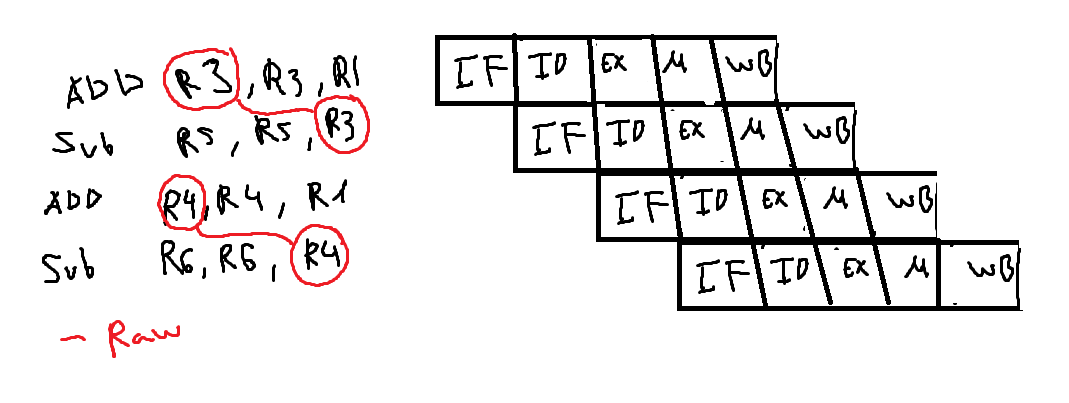 ADD R3, R3, R1
Sub R5, R5, R3
ADD R4, R4, R1
Sub R6, R6, R4
- Raw
IF ID EX M WB
IF ID EX M WB
IF ID EX M WB
IF ID EX M WB